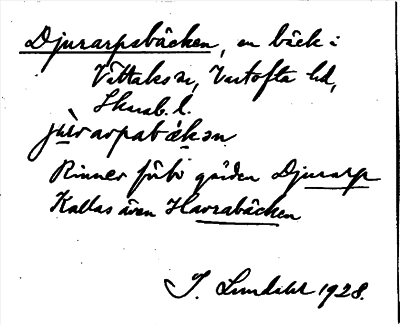 Djurarpsbäcken, en bäck i
Vittaks sn, Vartofta hd,
Skarab. l.
jùrarpabǽkən
Rinner förbi gården Djurarp
Kallas även Havrabäcken
J. Lundahl 1928.